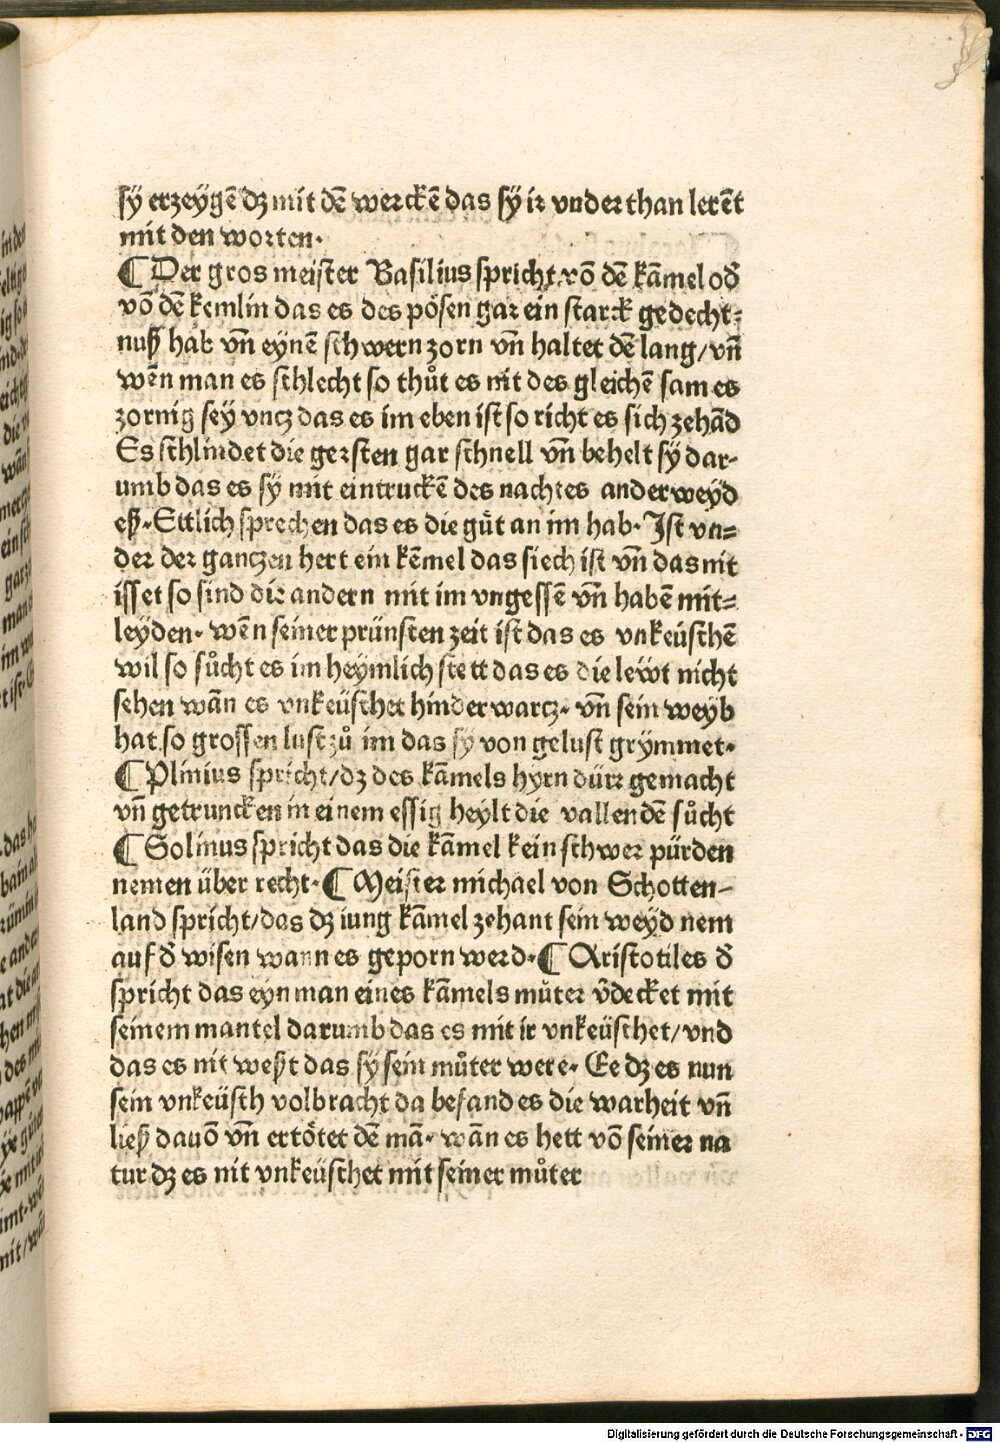 sÿ erzeÿgē dz mit dē werckē das sÿ ir vnderthan lerēt
mit den worten·
¶ Der gros meister Basilius spricht vō dē kāmel od̄
vō dē kemlin das es des pösen gar ein starck gedecht⸗
nuß hab vn̄ eynē schwern zorn vn̄ haltet dē lang/ vn̄
wēn man es schlecht so thůt es nit des gleichē sam es
zornig seÿ vncz das es im eben ist so richt es sich zehād
Es schlindet die gersten gar schnell vn̄ behelt sÿ dar⸗
umb das es sÿ mit eintruckē des nachtes anderweÿd
eß· Ettlich sprechen das es die gu̇t an im hab· Ist vn⸗
der der ganczen hert ein kēmel das siech ist vn̄ das nit
isset so sind die andern mit im vngessē vn̄ habē mit⸗
leÿden· wēn seiner prünsten zeit ist das es vnkeüschē
wil so sůcht es im heÿmlich stett das es die lewt nicht
sehen wān es vnkeüschet hinderwarcz· vn̄ sein weÿb
hat so grossen lust zů im das sÿ von gelust grÿmmet·
¶ Plinius spricht/ dz des kāmels hyrn dürr gemacht
vn̄ getruncken in einem essig heylt die vallendē sůcht
¶ Solinus spricht das die kāmel kein schwer pürden
nemen über recht· ¶ Meister michael von Schotten⸗
land spricht/ das dz iung kāmel zehant sein weÿd nem
auf d̄ wisen wann es geporn werd· ¶ Aristotiles d̄
spricht das eyn man eines kāmels můter v̄decket mit
seinem mantel darumb das es mit ir vnkeüschet/ vnd
das es nit weßt das sÿ sein můter were· Ee dz es nun
sein vnkeüsch volbracht da befand es die warheit vn̄
ließ dauō vn̄ ertötet dē mā· wān es hett vō seiner na
tur dz es nit vnkeüschet mit seiner můter
Digitalisierung gefördert durch die Deutsche Forschungsgemeinschaft - DFG